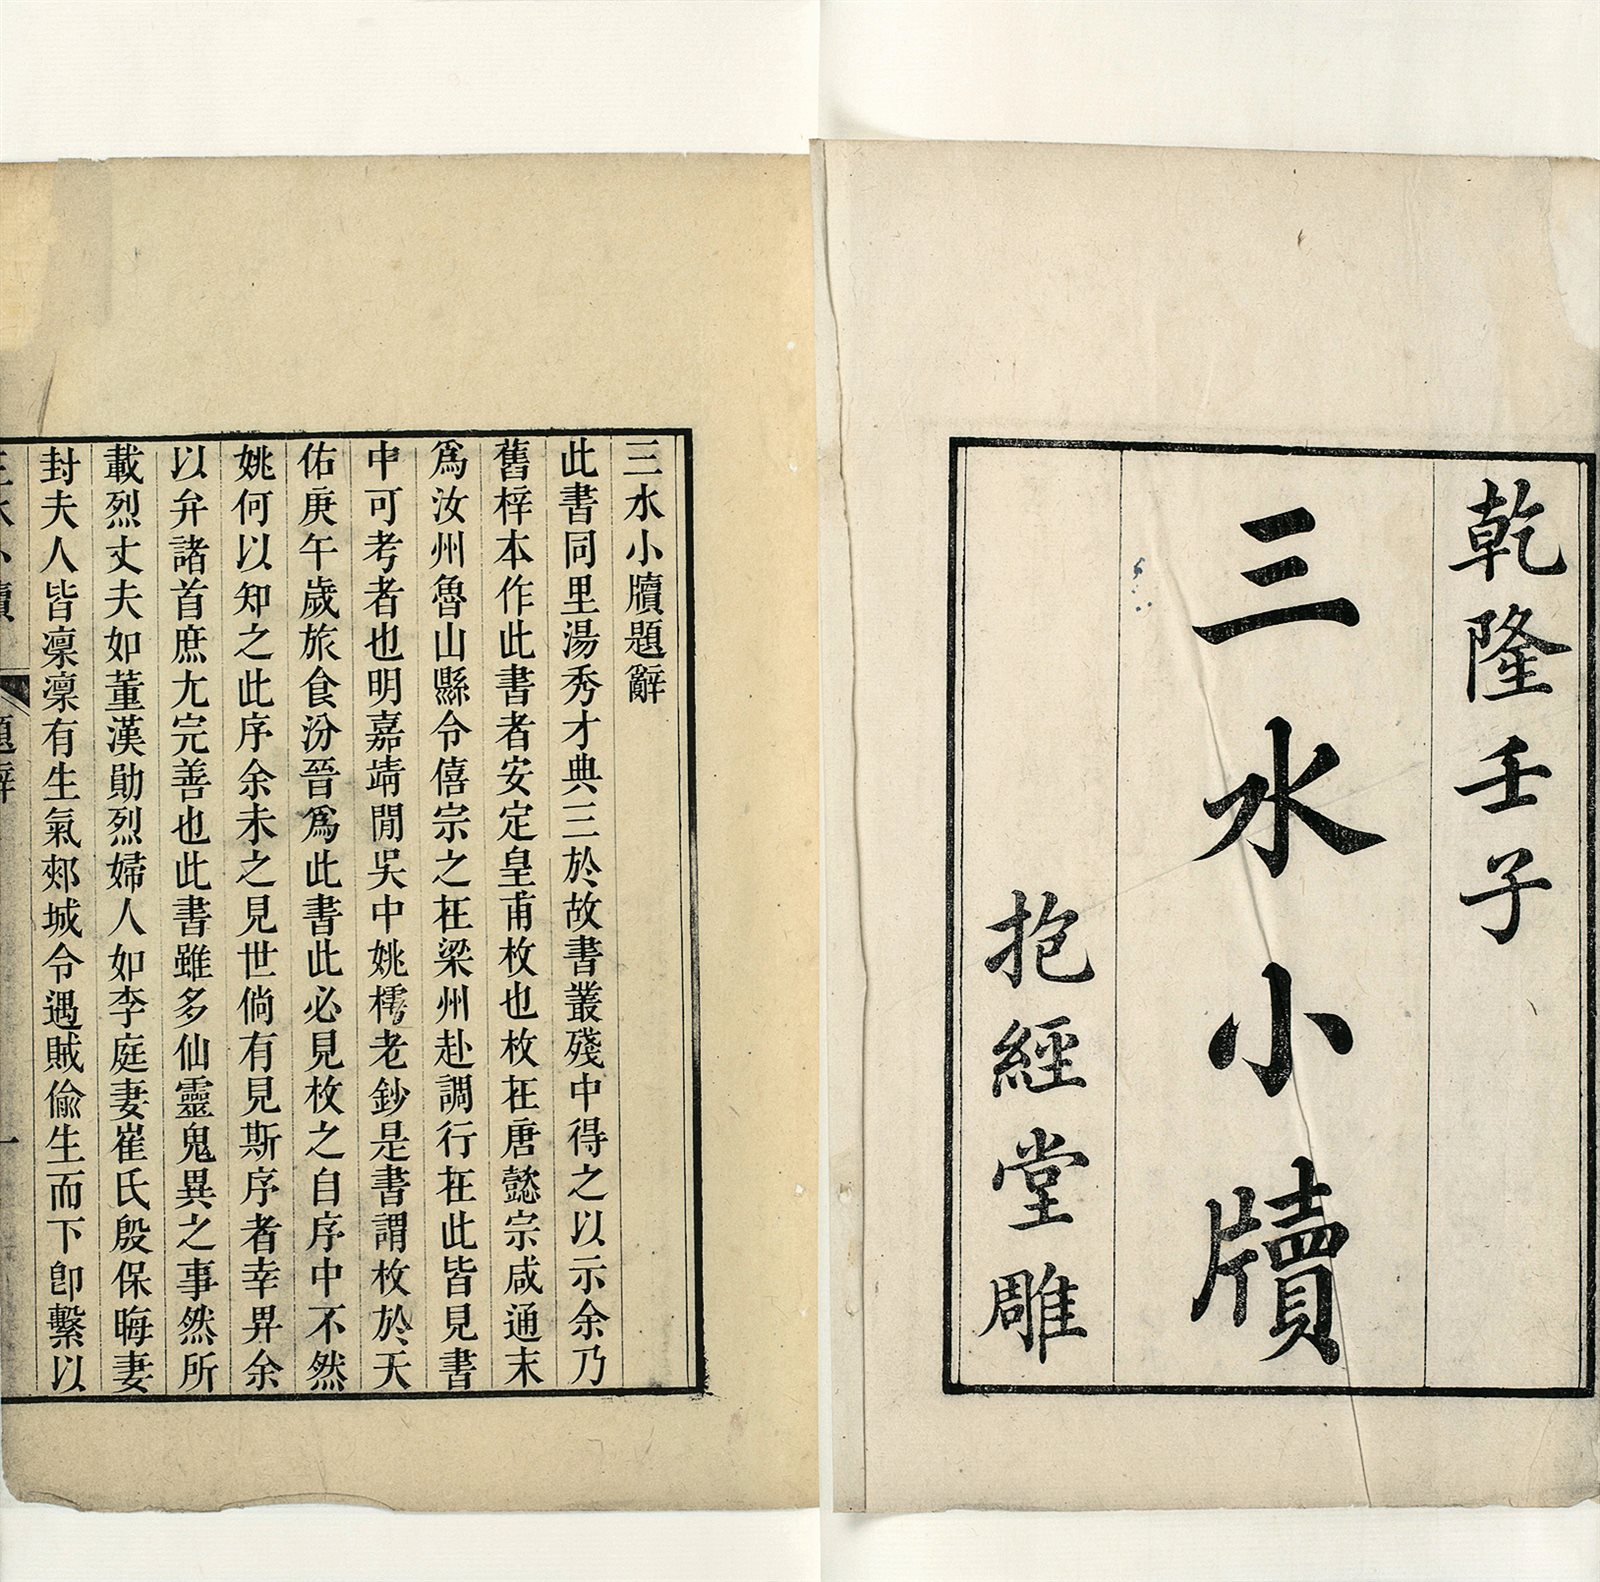 乾隆壬子
三水小牘
抱經堂雕
三水小牘題辭
此書同里湯秀才典三於故書叢殘中得之以示余乃
舊梓本作此書者安定皇甫枚也枚在唐懿宗咸通末
爲汝州魯山縣令僖宗之在梁州赴調行在此皆見書
中可考者也明嘉靖閒吳中姚樗老鈔是書謂枚於天
佑庚午歲旅食汾晉爲此書此必見枚之自序中不然
姚何以知之此序余未之見世倘有見斯序者幸畀余
以弁諸首庶尤完善也此書雖多仙靈鬼異之事然所
載烈丈夫如董漢勛烈婦人如李庭妻崔氏殷保晦妻
封夫人皆凜凜有生氣郟城令遇賊偷生而下卽繫以
三水小牘 題辭 一